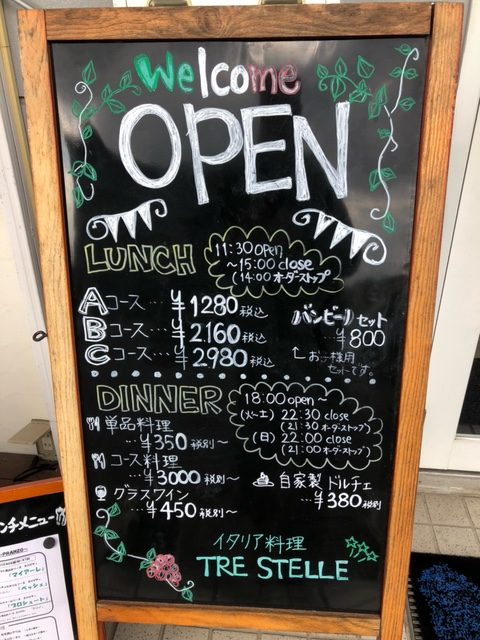 Welcome
OPEN
LUNCH
11:30 open
~15:00 close
(14:00 オーダーストップ
Aコース…¥1280税込
Bコース…¥2.160税込
Cコース…¥2980税込
バンビーノセット
¥800
お子様用
セットです。
DINNER
18:00 open~
(火~土) 22:30 close
(21:30 オーダーストップ)
(日) 22:00 close
(21:00 オーダーストップ)
単品料理
…¥350税別~
コース料理
…¥3000税別~
グラスワイン
…¥450税別~
自家製ドルチェ
…¥380税別
イタリア料理
TRE STELLE
ンチメニュー
-PRANZO-